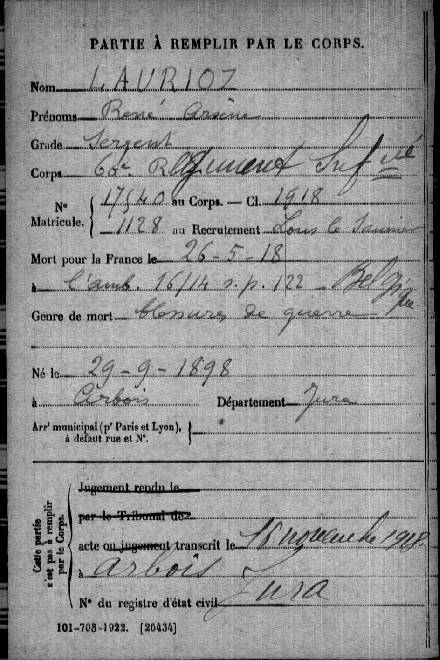 PARTIE À REMPLIR PAR LE CORPS.
Nom LAURIOZ
Prénoms René Arsène
Grade Sergent
Corps 60e Régiment Infrie
No 17540 au Corps. — Cl. 1918
Matricule. 1128 au Recrutement Lons le Saunier
Mort pour la France le 26-5-18
à l'amb. 16/14 s.p. 122 Belgique
Genre de mort blessures de guerre
Né le 29-9-1898
à Arbois Département Jura
Arrt municipal (pr Paris et Lyon),
à défaut rue et No.
Cette partie
n'est pas à remplir
par le Corps.
Jugement rendu le
par le Tribunal de
acte ou jugement transcrit le 15 novembre 1918
à Arbois
Jura
No du registre d'état civil
101-708-1922. [26434]